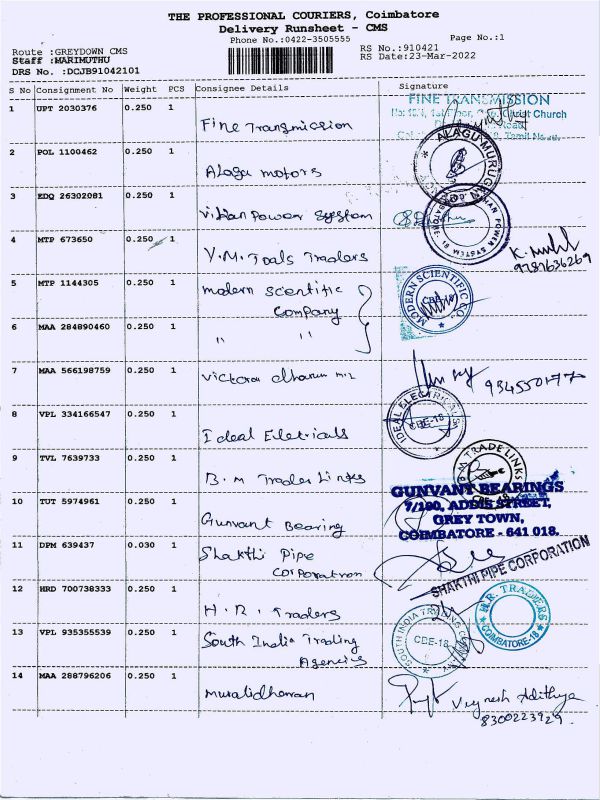 THE PROFESSIONAL COURIERS, Coimbatore
Delivery Runsheet - CMS
Phone No.:0422-3505555
Page No.:1
Route :GREYDOWN CMS
RS No.:910421
Staff :MARIMUTHU
RS Date:23-Mar-2022
DRS No. :DCJB91042101
S No Consignment No Weight PCS Consignee Details Signature
1 UPT 2030376 0.250 1 Fine Transmission
FINE TRANSMISSION
1st Floor, Christ Church
Road
Tamil Nadu
2 POL 1100462 0.250 1 Alagu motors
ALAGU MURUGAN
3 EDQ 26302081 0.250 1 Power System
POWER SYSTEM
4 MTP 673650 0.250 1 V.M. Tools Traders
9787636269
5 MTP 1144305 0.250 1 modern Scentific
Company
MODERN SCIENTIFIC CO.
CBE-18
6 MAA 284890460 0.250 1 " "
7 MAA 566198759 0.250 1 Victora
8 VPL 334166547 0.250 1 Ideal Eletricals
IDEAL ELECTRICALS
CBE-18
9 TVL 7639733 0.250 1 B.M Trader Links
B.M TRADE LINKS
CBE-18
10 TUT 5974961 0.250 1 Gunvant Bearing
GUNVANT BEARINGS
7/190, ADDIS STREET,
GREY TOWN,
COIMBATORE - 641 018.
11 DPM 639437 0.030 1 Shakthi Pipe
Corporation
SHAKTHI PIPE CORPORATION
12 HRD 700738333 0.250 1 H.R. Traders
H.R. TRADERS
COIMBATORE-18
13 VPL 935355539 0.250 1 South India Trading
Agencies
SOUTH INDIA TRADING
CBE-18
14 MAA 288796206 0.250 1 Muralidharan
Vignesh Adithya
8300223929